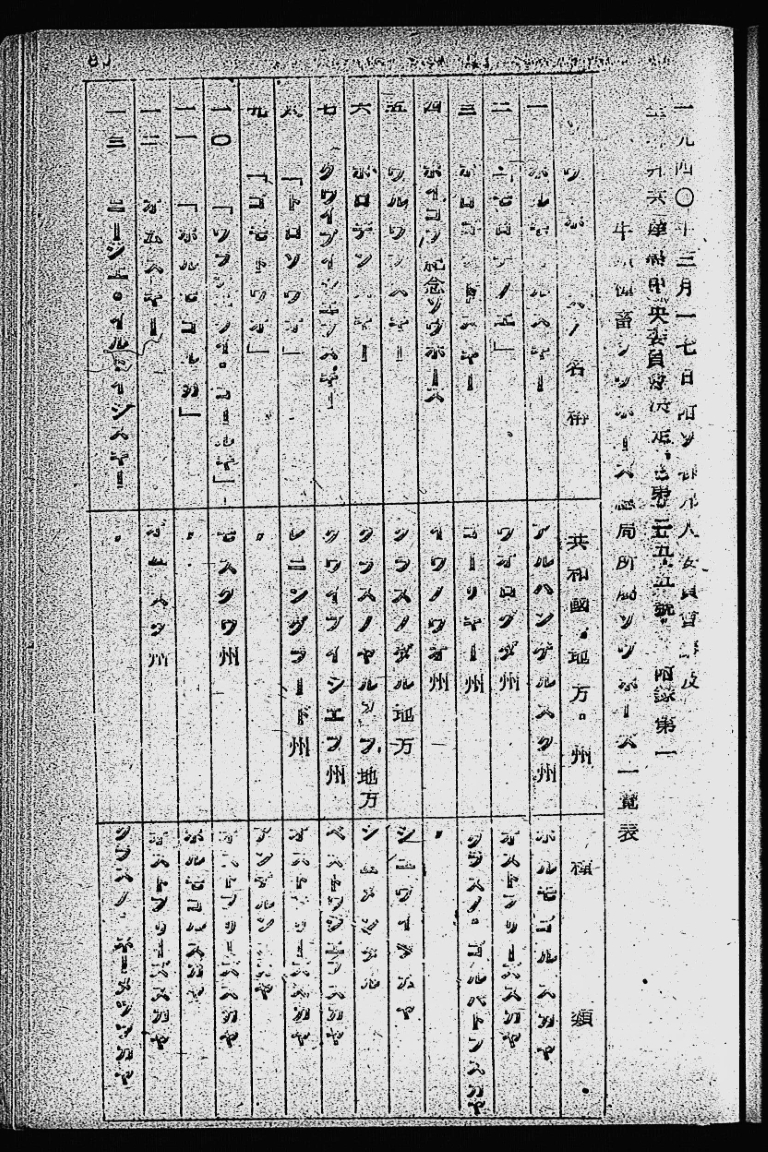 一九四〇年三月一七日附ソ聯邦人民委員會議及
全聯邦共産黨中央委員會決定、第三五九五號 附録第一
牛類種畜ソウホーズ總局所屬ソウホーズ一覽表
ソウホーズノ名稱 共和國・地方・州 種類
一 アルハンゲルスク州 ホルモゴルスカヤ
二 ウオログダ州 オストフリーズスカヤ
三 ゴーリキー州 クラスノ・ゴルバトフスカヤ
四 ボイコフ紀念ソウホーズ イワノウオ州 〃
五 クラスノダル地方 シユウイツカヤ
六 ボロデンスキー クラスノヤルスク地方 シムメンタル
七 クウイブイシエフスキー クウイブイシエフ州 ベストウジエフスカヤ
八 「トロソウオ」 レニングラード州 オストフリーズスカヤ
九 「ゴモントウオ」 〃 アンゲルンスカヤ
一〇 モスクワ州 オストフリーズスカヤ
一一 「ホルモゴルカ」 〃 ホルモゴルスカヤ
一二 オムスキー オムスク州 オストフリーズスカヤ
一三 ニージエ・イルテイシスキー 〃 クラスノ・ネーメツツカヤ